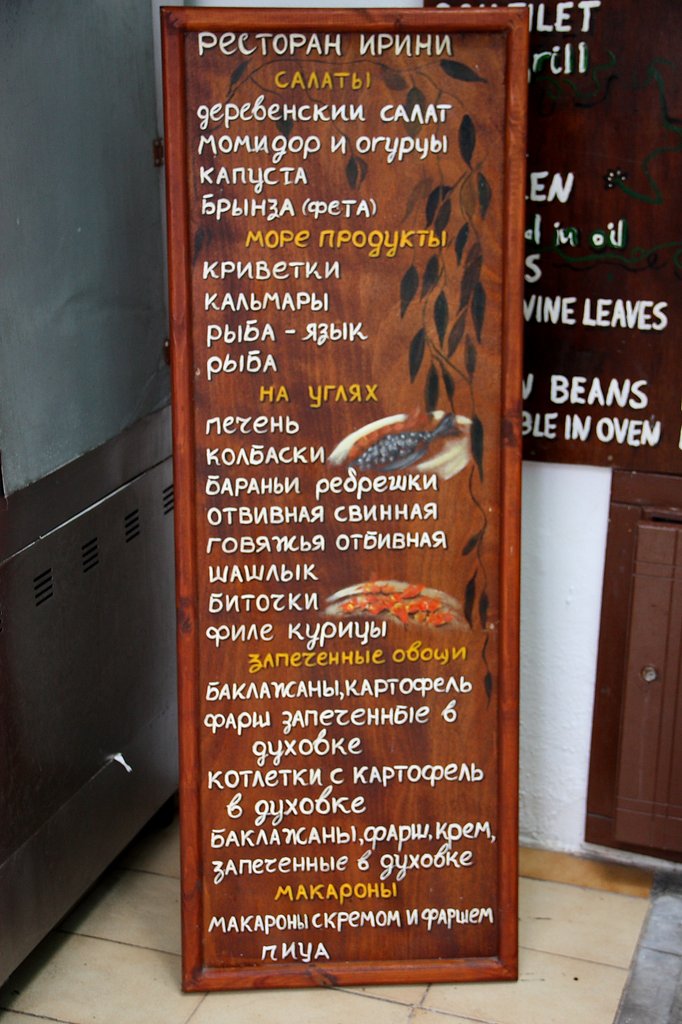 РЕСТОРАН ИРИНИ
САЛАТЫ
деревенскии САЛАТ
помидор и огурцы
КАПУСТА
БРЫНЗА (фЕТА)
МОРЕ ПРОДУКТЫ
КРИВЕТКИ
КАЛЬМАРЫ
РЫБА - ЯЗЫК
РЫБА
НА УГЛЯХ
ПЕЧЕНЬ
КОЛБАСКИ
БАРАНЬИ ребрешки
ОТВИВНАЯ СВИННАЯ
ГОВЯЖЬЯ ОТБИВНАЯ
ШАШЛЫК
БИТОЧКИ
филе курицы
ЗАПЕЧЕННЫЕ овощи
БАКЛАЖАНЫ,КАРТОФЕЛЬ
фАРШ ЗАПЕЧЕННЫЕ В
духовке
КОТЛЕТКИ С КАРТОФЕЛЬ
в духовке
БАКЛАЖАНЫ,фАРШ,КРЕМ,
ЗАПЕЧЕННЫЕ в духовке
МАКАРОНЫ
МАКАРОНЫ С КРЕМОМ И фАРШЕМ
ПИЦА
grill
in oil
VINE LEAVES
BEANS
IN OVEN